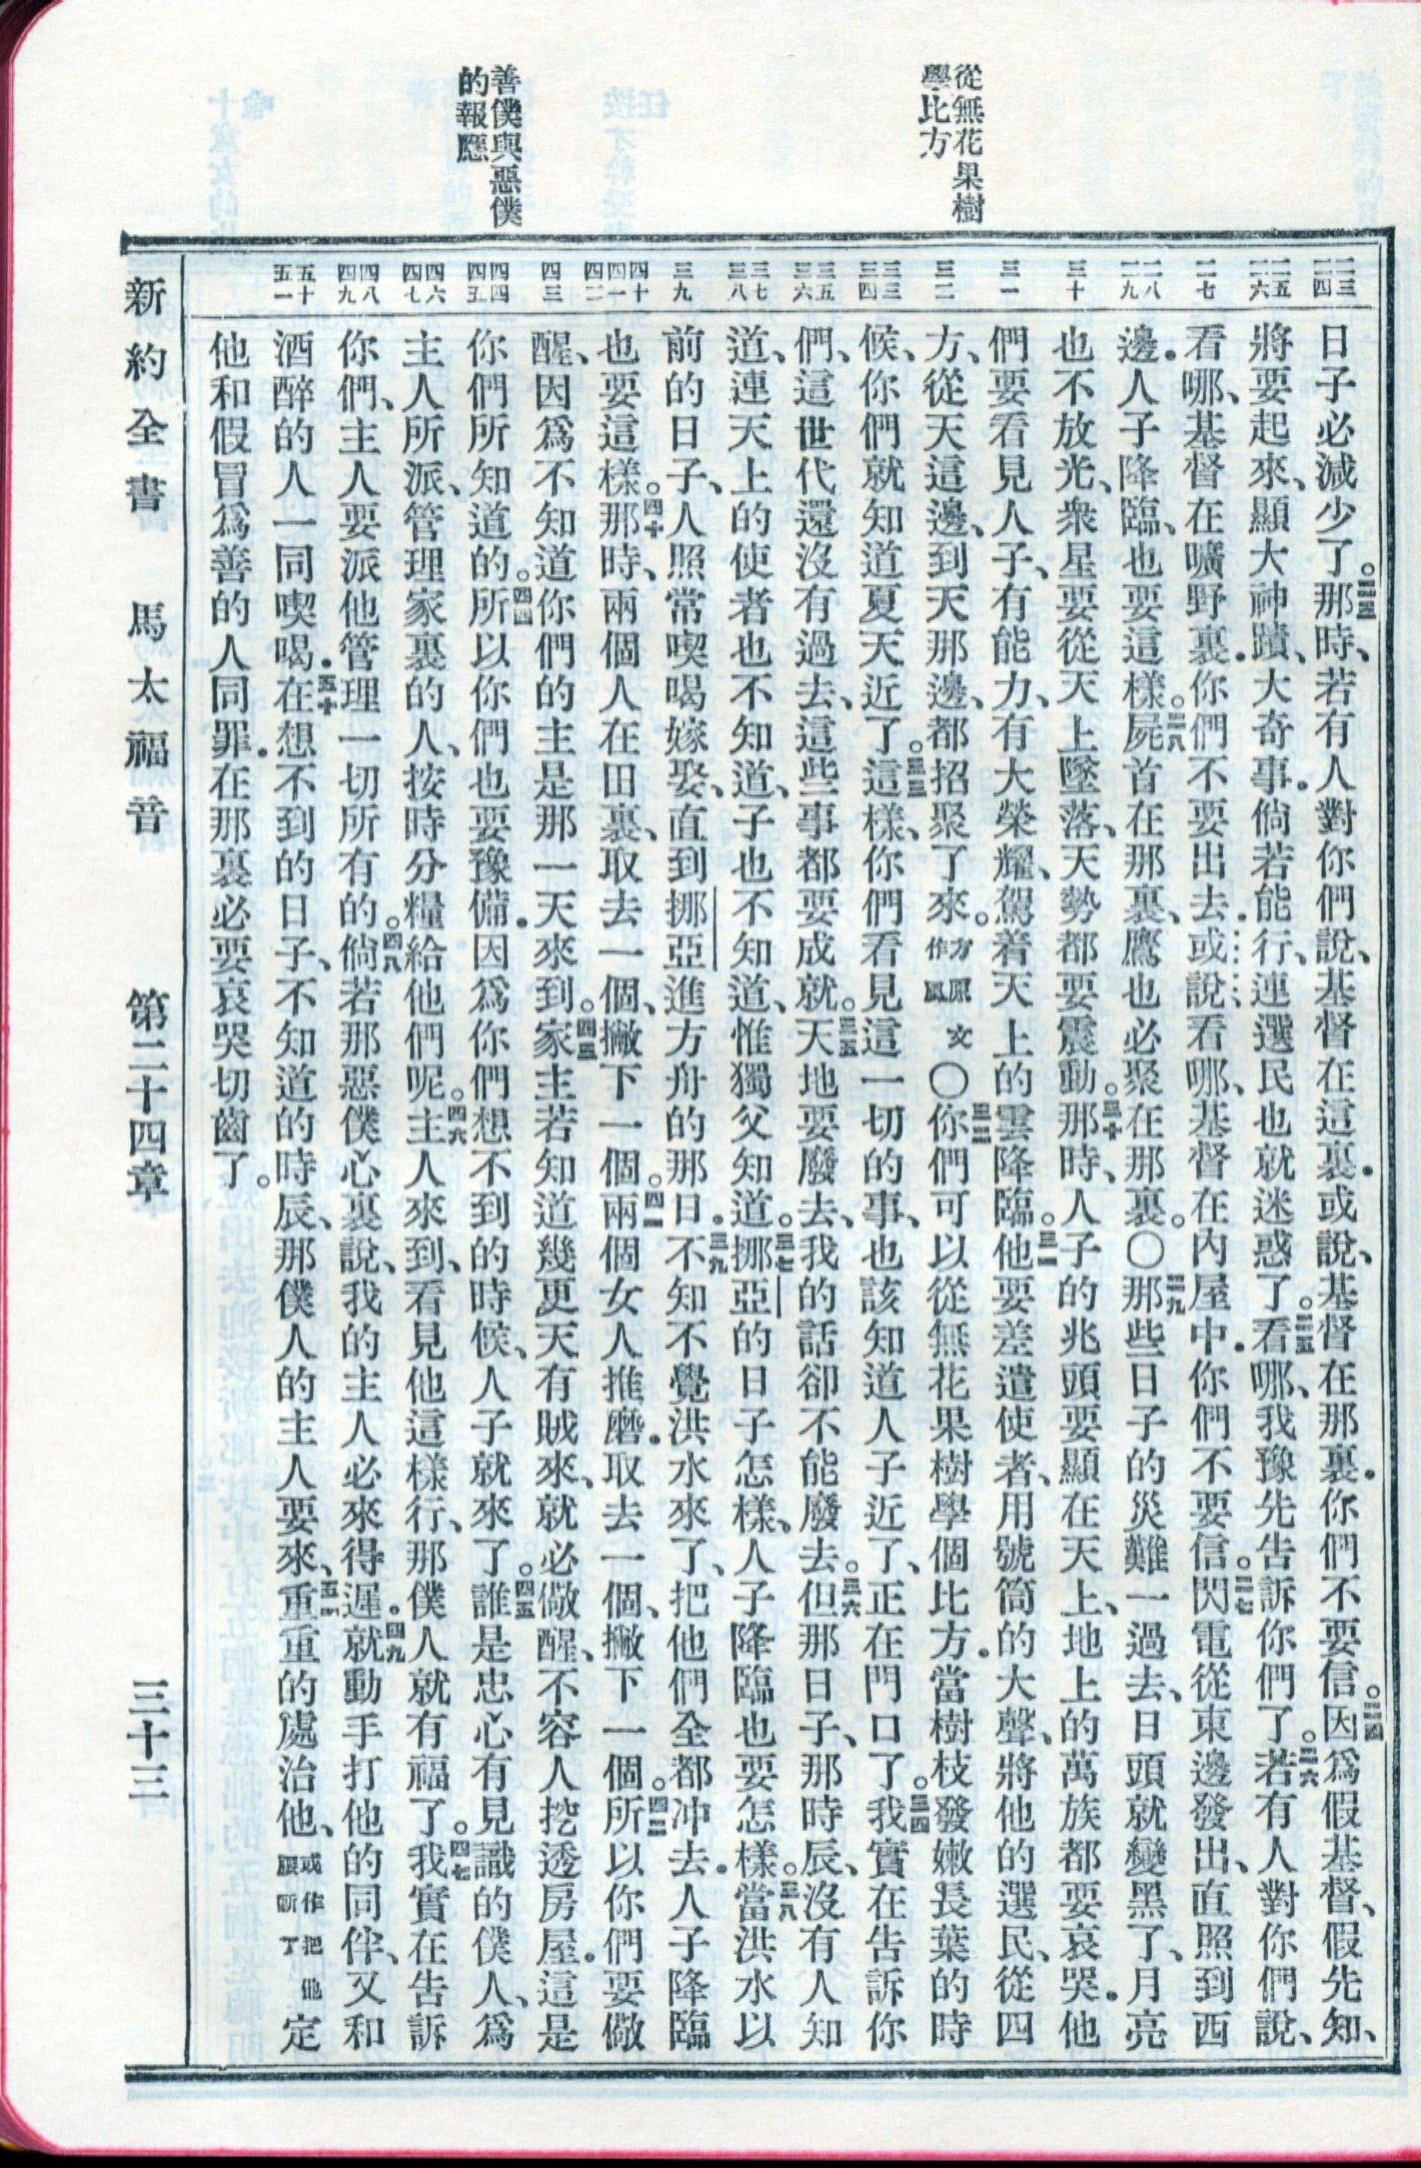 從無花果樹
學比方
善僕與惡僕
的報應
二三 二四
二五 二六
二七
二八 二九
三十
三一
三二
三三 三四
三五 三六
三七 三八
三九
四十 四一 四二
四三
四四 四五
四六 四七
四八 四九
五十 五一
日子必減少了。二三那時、若有人對你們說、基督在這裏．或說、基督在那裏．你們不要信。二四因爲假基督、假先知、
將要起來、顯大神蹟、大奇事．倘若能行、連選民也就迷惑了。二五看哪、我豫先告訴你們了。二六若有人對你們說、
看哪、基督在曠野裏．你們不要出去．或說、看哪、基督在內屋中．你們不要信。二七閃電從東邊發出、直照到西
邊．人子降臨、也要這樣。二八屍首在那裏、鷹也必聚在那裏。〇二九那些日子的災難一過去、日頭就變黑了、月亮
也不放光、衆星要從天上墜落、天勢都要震動。三十那時、人子的兆頭要顯在天上、地上的萬族都要哀哭．他
們要看見人子、有能力、有大榮耀、駕着天上的雲降臨。三一他要差遣使者、用號筒的大聲、將他的選民、從四
方、從天這邊、到天那邊、都招聚了來。方原文作風〇三二你們可以從無花果樹學個比方．當樹枝發嫩長葉的時
候、你們就知道夏天近了。三三這樣、你們看見這一切的事、也該知道人子近了、正在門口了。三四我實在告訴你
們、這世代還沒有過去、這些事都要成就。三五天地要廢去、我的話卻不能廢去。三六但那日子、那時辰、沒有人知
道、連天上的使者也不知道、子也不知道、惟獨父知道。三七挪亞的日子怎樣、人子降臨也要怎樣。三八當洪水以
前的日子、人照常喫喝嫁娶、直到挪亞進方舟的那日．三九不知不覺洪水來了、把他們全都冲去．人子降臨
也要這樣。四十那時、兩個人在田裏、取去一個、撇下一個。四一兩個女人推磨．取去一個、撇下一個。四二所以你們要儆
醒、因爲不知道你們的主是那一天來到。四三家主若知道幾更天有賊來、就必儆醒、不容人挖透房屋．這是
你們所知道的。四四所以你們也要豫備．因爲你們想不到的時候、人子就來了。四五誰是忠心有見識的僕人、爲
主人所派、管理家裏的人、按時分糧給他們呢。四六主人來到、看見他這樣行、那僕人就有福了。四七我實在告訴
你們、主人要派他管理一切所有的。四八倘若那惡僕心裏說、我的主人必來得遲．四九就動手打他的同伴、又和
酒醉的人一同喫喝．五十在想不到的日子、不知道的時辰、那僕人的主人要來、五一重重的處治他、或作把他腰斷了定
他和假冒爲善的人同罪．在那裏必要哀哭切齒了。
新約全書 馬太福音 第二十四章 三十三